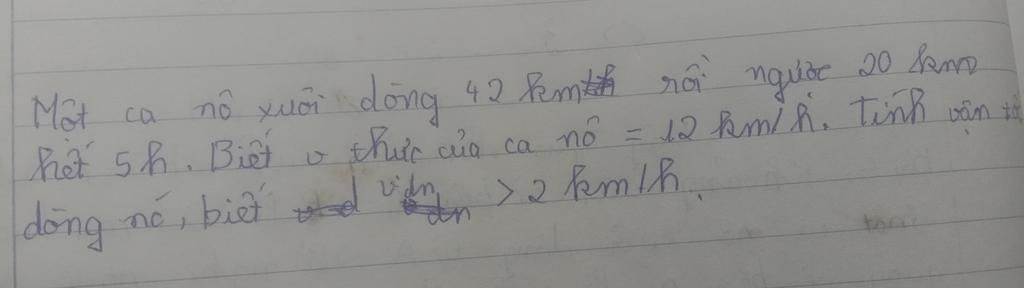 Một ca nô xuôi dòng 42 km rồi ngược 20 km
hết 5h. Biết v thực của ca nô = 12 km/h. Tính vận tố
dòng nó, biết vdn > 2 km/h.